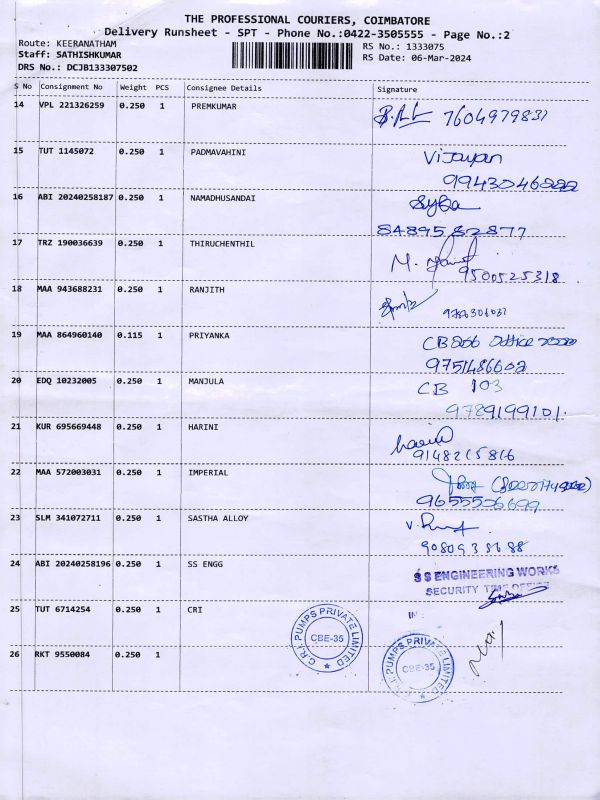 THE PROFESSIONAL COURIERS, COIMBATORE
Delivery Runsheet - SPT - Phone No.:0422-3505555 - Page No.:2
Route: KEERANATHAM
Staff: SATHISHKUMAR
DRS No.: DCJB133307502
RS No.: 1333075
RS Date: 06-Mar-2024
S No Consignment No Weight PCS Consignee Details Signature
14 VPL 221326259 0.250 1 PREMKUMAR
7604979837
15 TUT 1145072 0.250 1 PADMAVAHINI Vijayan
16 ABI 20240258187 0.250 1 NAMADHUSANDAI
8489582877
17 TRZ 190036639 0.250 1 THIRUCHENTHIL
9500525318
18 MAA 943688231 0.250 1 RANJITH
19 MAA 864960140 0.115 1 PRIYANKA
9751486602
20 EDQ 10232005 0.250 1 MANJULA CB 103
9789199101.
21 KUR 695669448 0.250 1 HARINI
9148215816
22 MAA 572003031 0.250 1 IMPERIAL
9655556699
23 SLM 341072711 0.250 1 SASTHA ALLOY
24 ABI 20240258196 0.250 1 SS ENGG
S S ENGINEERING WORKS
SECURITY TIME OFFICE
25 TUT 6714254 0.250 1 CRI
C.R.I. PUMPS PRIVATE LIMITED
CBE-35
26 RKT 9550084 0.250 1
C.R.I. PUMPS PRIVATE LIMITED
CBE-35